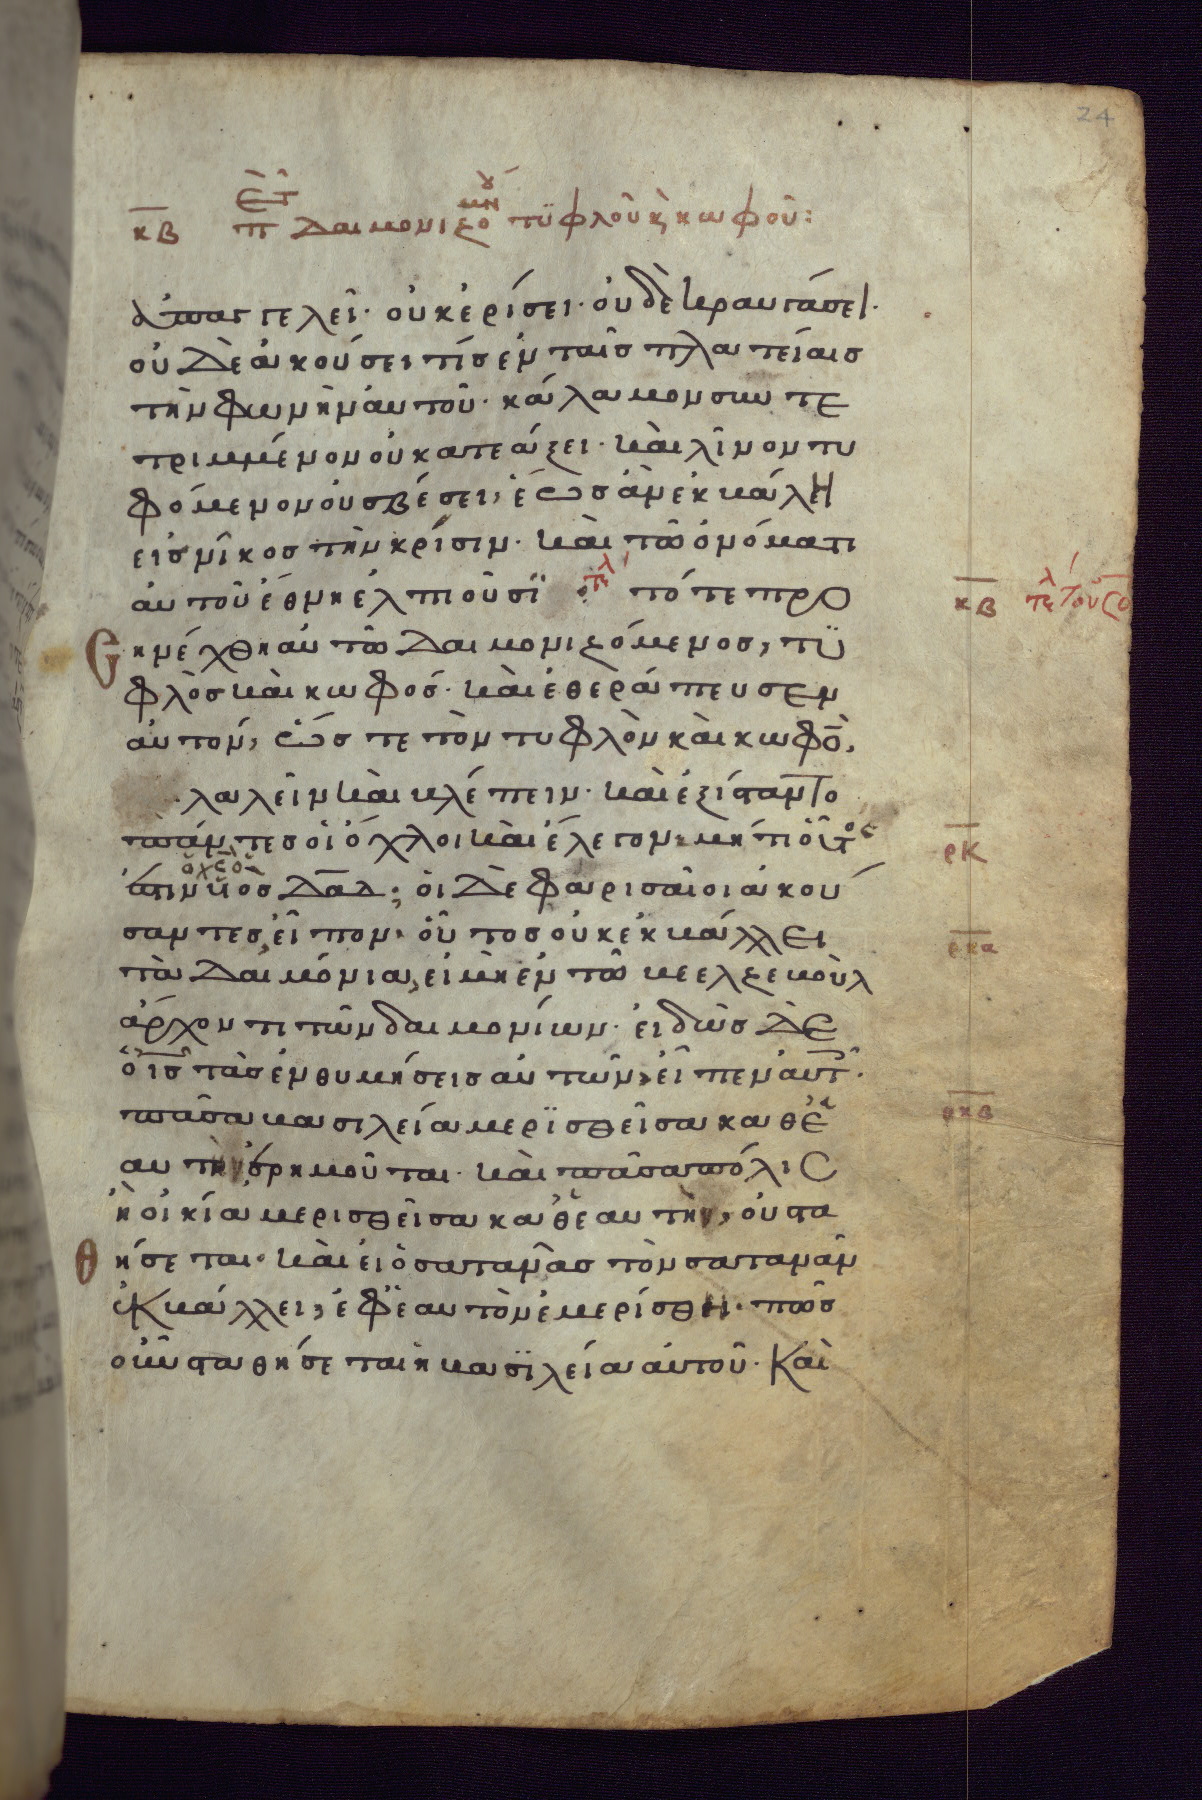 24
κβ π δαιμονιζομένου τϋφλοῦ κ κωφοῦ:
ἀπαγγελεῖ· οὐκ ἐρίσει· οὐδὲ κραυγάσει·
οὐδὲ ἀκούσει τίς ἐν ταῖς πλατείαις
τὴν φωνὴν αὐτοῦ· κάλαμον συντε
τριμμένον οὐ κατεάξει· καὶ λῖνον τυ
φόμενον οὐ σβέσει, ἕως ἂν ἐκβάλη
εἰς νῖκος τὴν κρίσιν· καὶ τῶ ὀνόματι
αὐτοῦ ἔθνη ἐλπιοῦσϊ τε τότε προ
κβ τε
σηνέχθη αὐτῶ δαιμονιζόμενος, τϋ
φλὸς καὶ κωφός· καὶ ἐθεράπευσεν
αὐτόν, ὥστε τὸν τυφλὸν καὶ κωφὸ,
λαλεῖν καὶ βλέπειν· καὶ ἐξίσταντο
πάντες οἱ ὄχλοι καὶ ἔλεγον· μήτι οὗτος
ρκ
ἐστιν ὁ υἱος δαδ; οἱ δὲ φαρισαῖοι ἀκού
σαντες, εἶπον· οὗτος οὐκ ἐκβάλλει
ρκα
τὰ δαιμόνια, εἰ μὴ ἐν τῶ βεελζεβοὺλ
ἄρχοντι τῶν δαιμονίων· εἰδὼς δὲ
ὁ ις τὰς ἐνθυμήσεις αὐτῶν, εἶπεν αὐτ·
ρκβ
πᾶσα βασιλεία μερϊσθεῖσα καθ ἑ
αυτὴν ἐρημοῦται· καὶ πᾶσα πόλις
ἢ οἰκία μερισθεῖσα καθ ἑαυτὴν, οὐ στα
θήσεται· καὶ εἰ ὁ σατανᾶς τὸν σατανᾶν
ἐκβάλλει, ἐφ ἑαυτὸν ἐμερίσθη· πῶς
οὖν σταθήσεται ἡ βασϊλεία αὐτοῦ· Καὶ